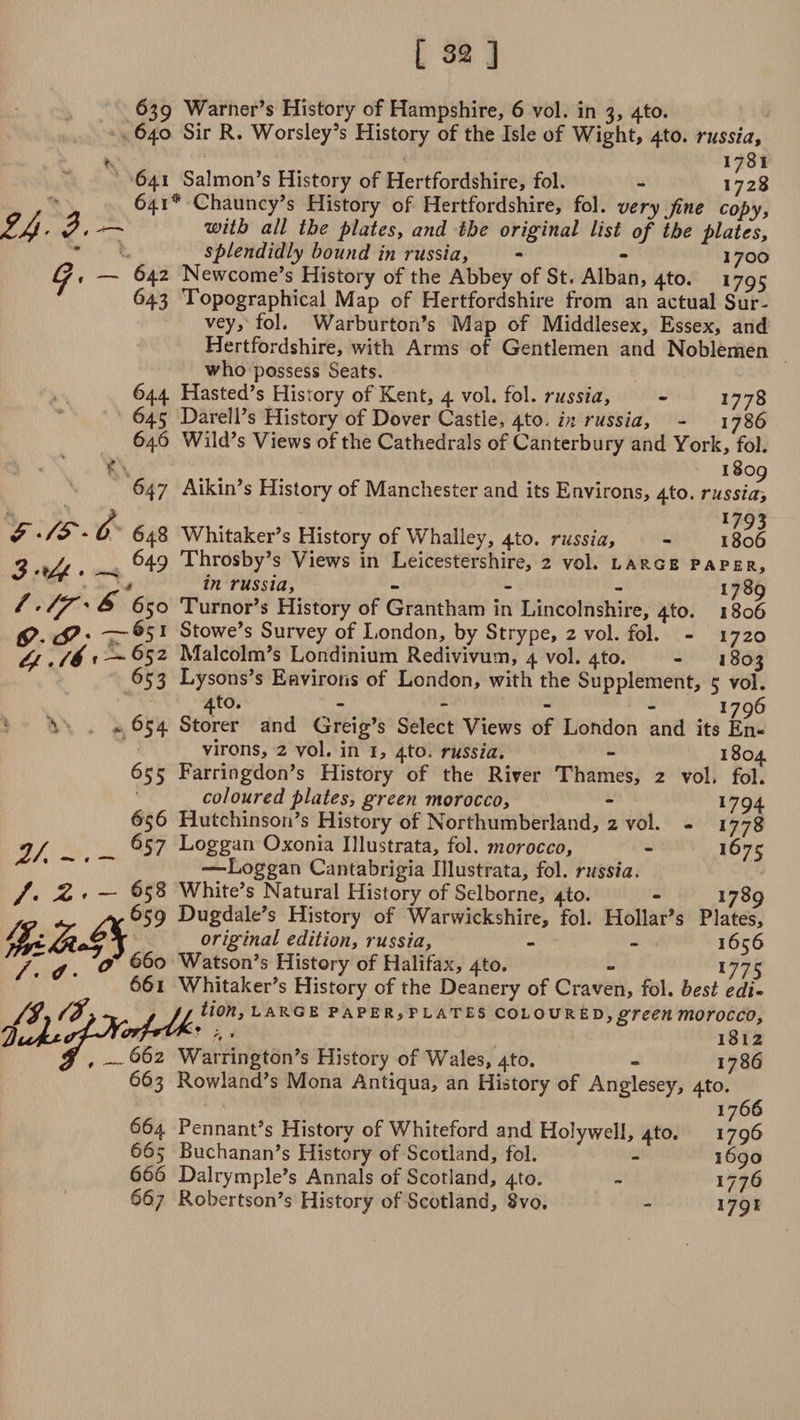 [ 32 ]
639 Warner's History of Hampshire, 6 vol. in 3, 4to.
640 Sir R. Worsley's History of the Isle of Wight, 4to. russia,
1781
641 Salmon's History of Hertfordshire, fol. - 1728
641* Chauncy's History of Hertfordshire, fol. very fine copy,
24. 3. — with all the plates, and the original list of the plates,
splendidly bound in russia, - - 1700
— 642 Newcome's History of the Abbey of St. Alban, 4to. 1795
643 Topographical Map of Hertfordshire from an actual Sur-
vey, fol. Warburton's Map of Middlesex, Essex, and
Hertfordshire, with Arms of Gentlemen and Noblemen
who possess Seats.
644 Hasted's History of Kent, 4 vol. fol. russia, - 1778
645 Darell's History of Dover Castle, 4to. in russia, - 1786
646 Wild's Views of the Cathedrals of Canterbury and York, fol.
1809
647 Aikin's History of Manchester and its Environs, 4to. russia,
1793
5.15.6 648 Whitaker's History of Whalley, 4to. russia, - 1806
649 Throsby's Views in Leicestershire, 2 vol. LARGE PAPER,
in russia, - - - 1789
1.17.6 650 Turnor's History of Grantham in Lincolnshire, 4to. 1806
9.9. — 651 Stowe's Survey of London, by Strype, 2 vol. fol. - 1720
4.16. — 652 Malcolm's Londinium Redivivum, 4 vol. 4to. - 1803
653 Lysons's Environs of London, with the Supplement, 5 vol.
4to. - - - 1796
654 Storer and Greig's Select Views of London and its En-
virons, 2 vol. in 1, 4to. russia. - 1804
655 Farringdon's History of the River Thames, 2 vol. fol.
coloured plates, green morocco, - 1794
656 Hutchinson's History of Northumberland, 2 vol. - 1778
21. — . — 657 Loggan Oxonia Illustrata, fol. morocco, - 1675
—Loggan Cantabrigia Illustrata, fol. russia.
1. 2. — 658 White's Natural History of Selborne, 4to. - 1789
659 Dugdale's History of Warwickshire, fol. Hollar's Plates,
original edition, russia, - - 1656
1. 9. 660 Watson's History of Halifax, 4to. - 1775
661 Whitaker's History of the Deanery of Craven, fol. best edi-
tion, LARGE PAPER, PLATES COLOURED, green morocco,
Duke of Norfolk. 1812
— 662 Warrington's History of Wales, 4to. - 1786
663 Rowland's Mona Antiqua, an History of Anglesey, 4to.
1766
664 Pennant's History of Whiteford and Holywell, 4to. 1796
665 Buchanan's History of Scotland, fol. - 1690
666 Dalrymple's Annals of Scotland, 4to. - 1776
667 Robertson's History of Scotland, 8vo. - 1791